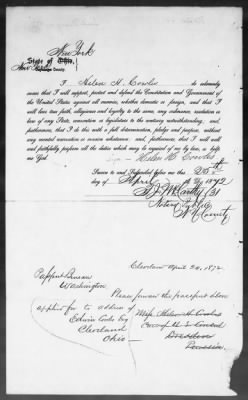 New York
State of Ohio,
County.
I Helen H. Cowles do solemnly
swear that I will support, protect and defend the Constitution and Government of
the United States against all enemies, whether domestic or foreign, and that I will
bear true faith, allegiance and loyalty to the same, any ordinance, resolution or
law of any State, convention or legislature to the contrary notwithstanding, and,
furthermore, that I do this with a full determination, pledge and purpose, without
any mental reservation or evasion whatsoever; and, furthermore, that I will well
and faithfully perform all the duties which may be required of me by law, so help
me God.
Helen H Cowles
Sworn to and Subscribed before me this 25th
day of April A. D. 1872
Notary Public
Cleveland April 20, 1872.
Passport Bureau
Washington
Please forward the passport above
applied for to address of
Edwin Cowles Esq
Cleveland
Ohio
Miss Helen H. Cowles
Care of U. S. Consul
Dresden